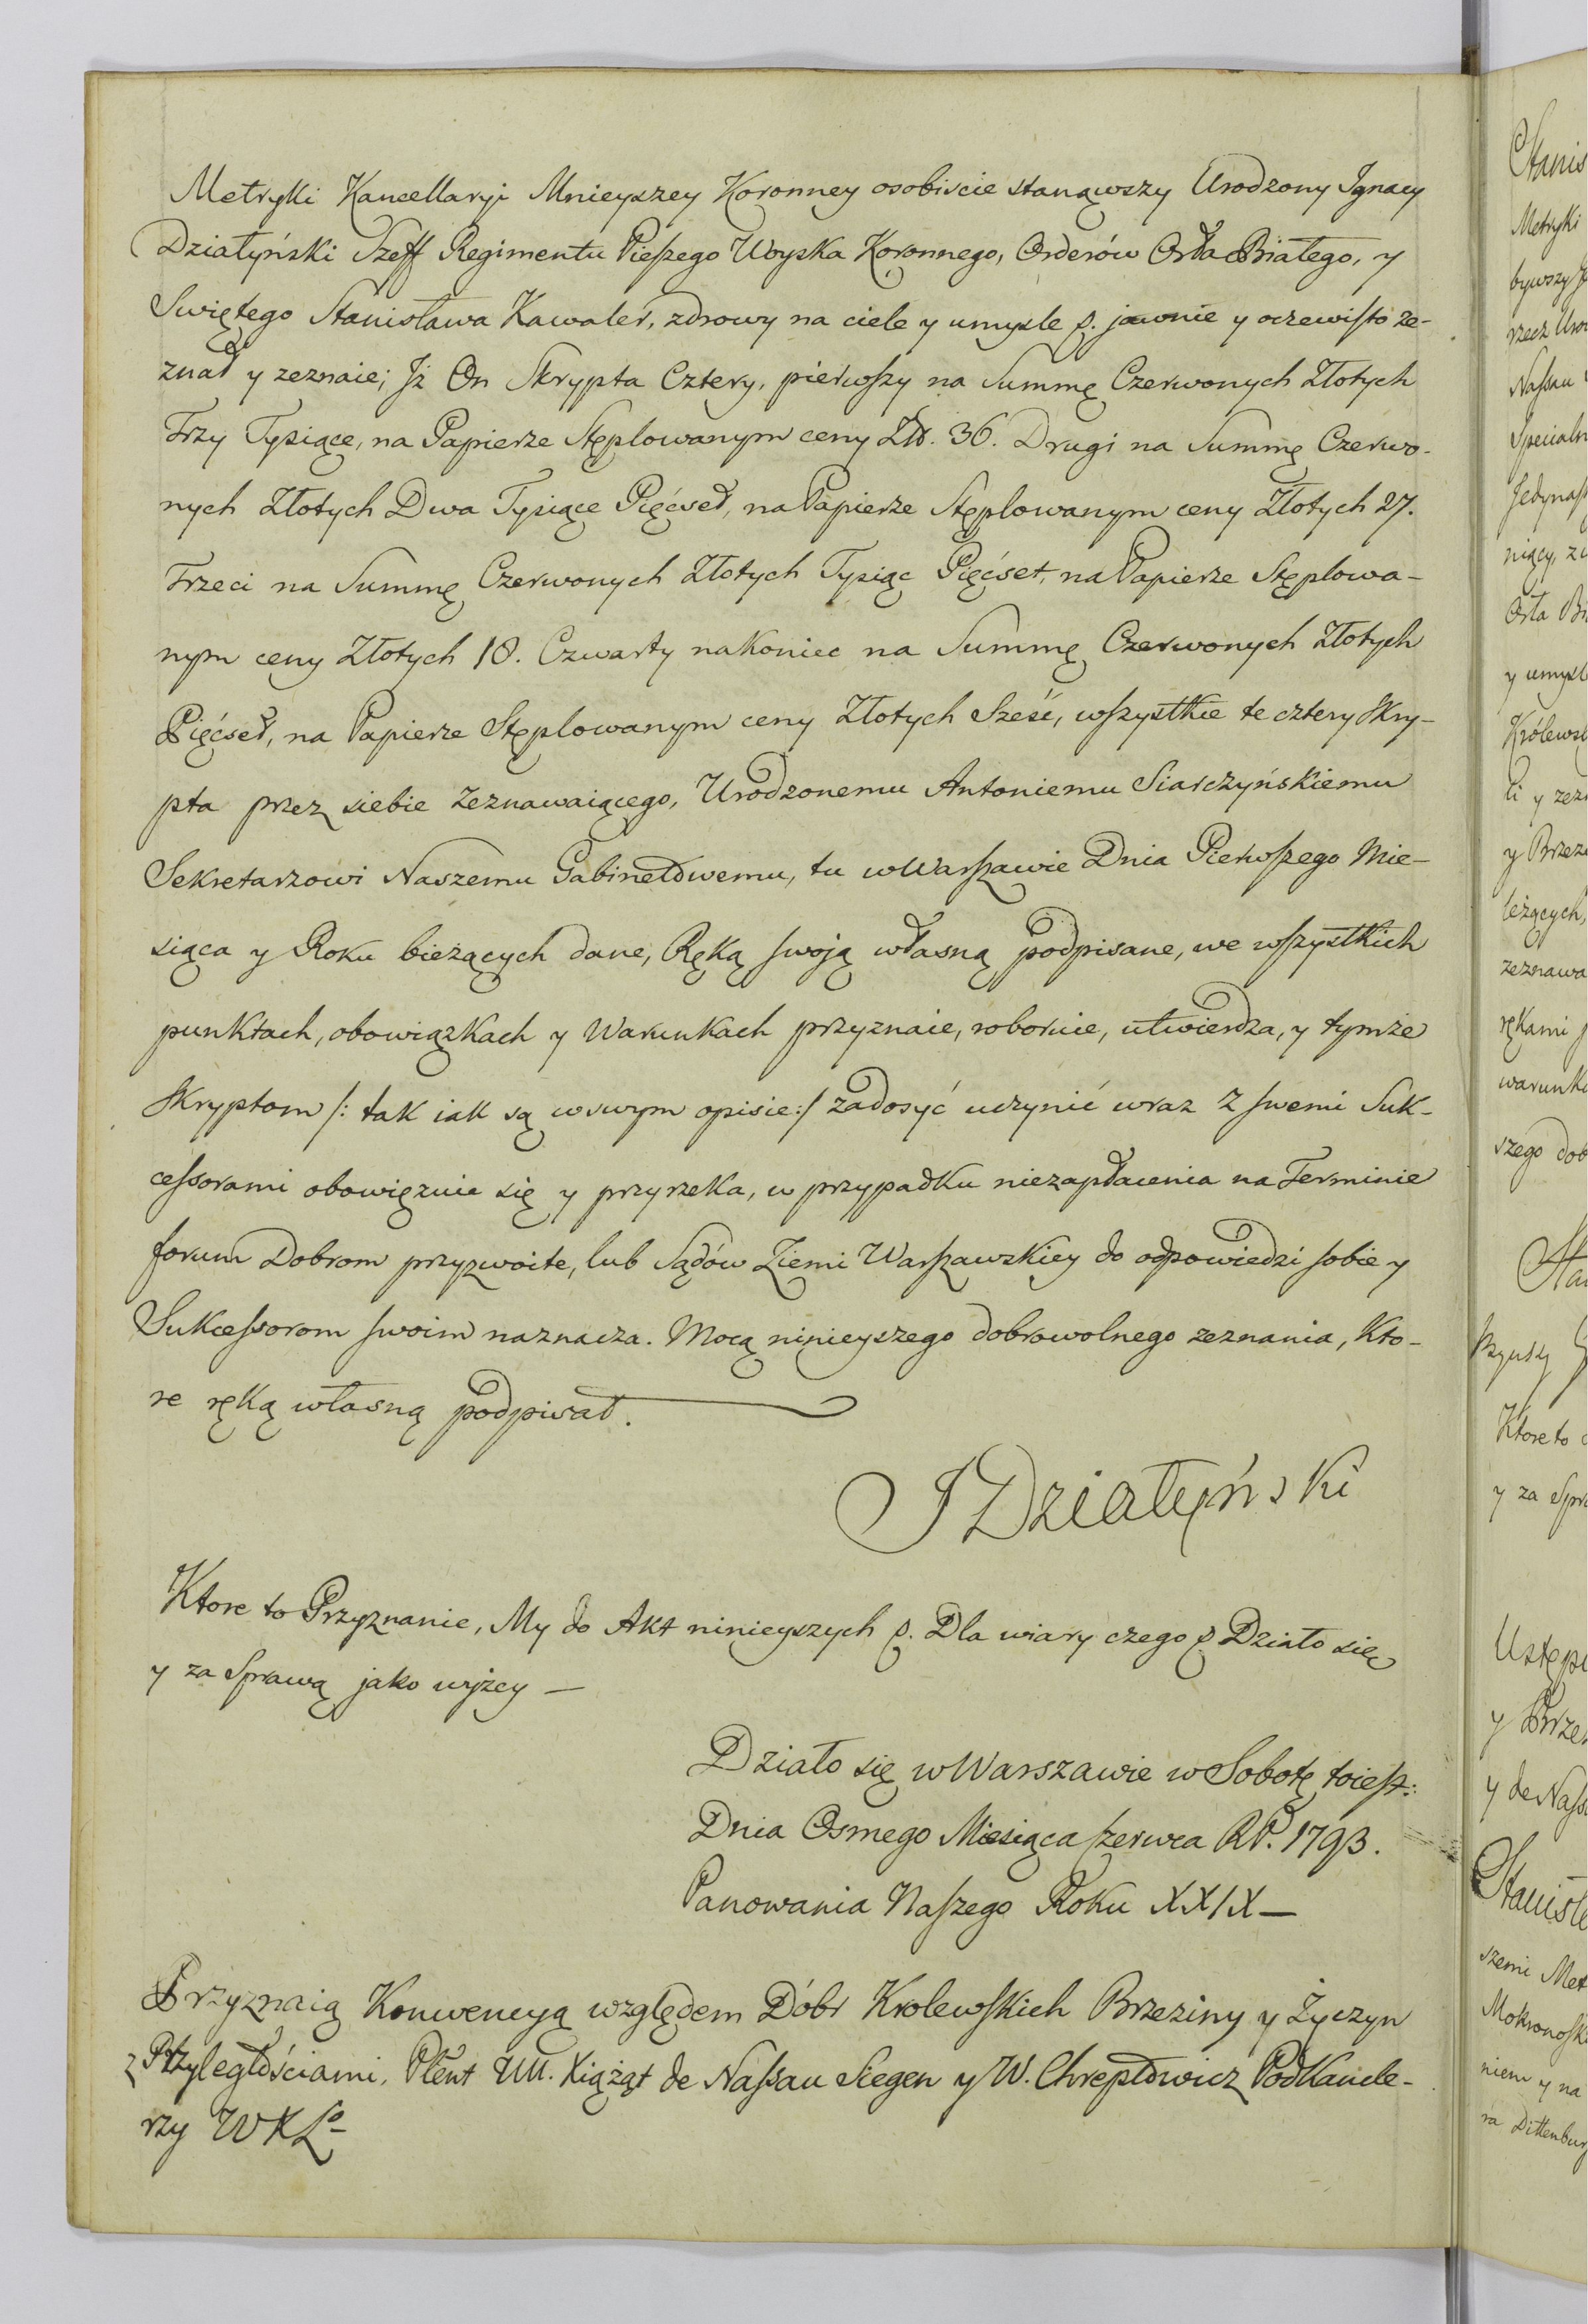 Metryki Kancellaryi Mnieyszey Koronney osobiscie stanąwszy Urodzony Jgnacy
Działyński Szeff Regimentu Pieszego Woyska Koronnego, Orderów Orła Białego, y
Swiętego Stanisława Kawaler, zdrowy na ciele y umysle p. jawnie y oczewisto ze-
znał y zeznaie; Jż On Skrypta Cztery, pierwszy na Summę Czerwonych Złotych
Trzy Tysiące, na Papierze Stęplowanym ceny Zł. 36. Drugi na Summę Czerwo-
nych Złotych Dwa Tysiące Pięćset, na Papierze Stęplowanym ceny Złotych 27.
Trzeci na Summę Czerwonych Złotych Tysiąc Pięćset, na Papierze Stęplowa-
nym ceny Złotych 18. Czwarty nakoniec na Summę Czerwonych Złotych
Pięćset, na Papierze Stęplowanym ceny Złotych Sześć, wszystkie te cztery Skry-
pta przez siebie zeznawaiącego, Urodzonemu Antoniemu Siarczyńskiemu
Sekretarzowi Naszemu Gabinetowemu, tu w Warszawie Dnia Pierwszego Mie-
siąca y Roku bieżących dane, Ręką swoją własną podpisane, we wszystkich
punktach, obowiązkach y Warunkach przyznaie, roboruie, utwierdza, y tymże
Skryptom /: tak iak są w swym opisie :/ zadosyć uczynić wraz z swemi Suk-
cessorami obowięzuie się y przyrzeka, w przypadku niezapłacenia na Terminie
forum Dobrom przyzwoite, lub Sądów Ziemi Warszawskiey do odpowiedzi sobie y
Sukcessorom swoim naznacza. Mocą ninieyszego dobrowolnego zeznania, Kto-
re ręką własną podpisał.
J Działyński
Ktore to Przyznanie, My do Akt ninieyszych p. Dla wiary czego p Działo się
y za Sprawą jako wyżey —
Działo się w Warszawie w Sobotę toiest:
Dnia Osmego Miesiąca Czerwca RP. 1793.
Panowania Naszego Roku XXIX —
Przyznaią Konwencyą względem Dóbr Krolewskich Brzeziny y Życzyn
z Przyległościami, Plent UU. Xiążąt de Nassau Siegen y W. Chreptowicz PodKancle-
rzy WXLo